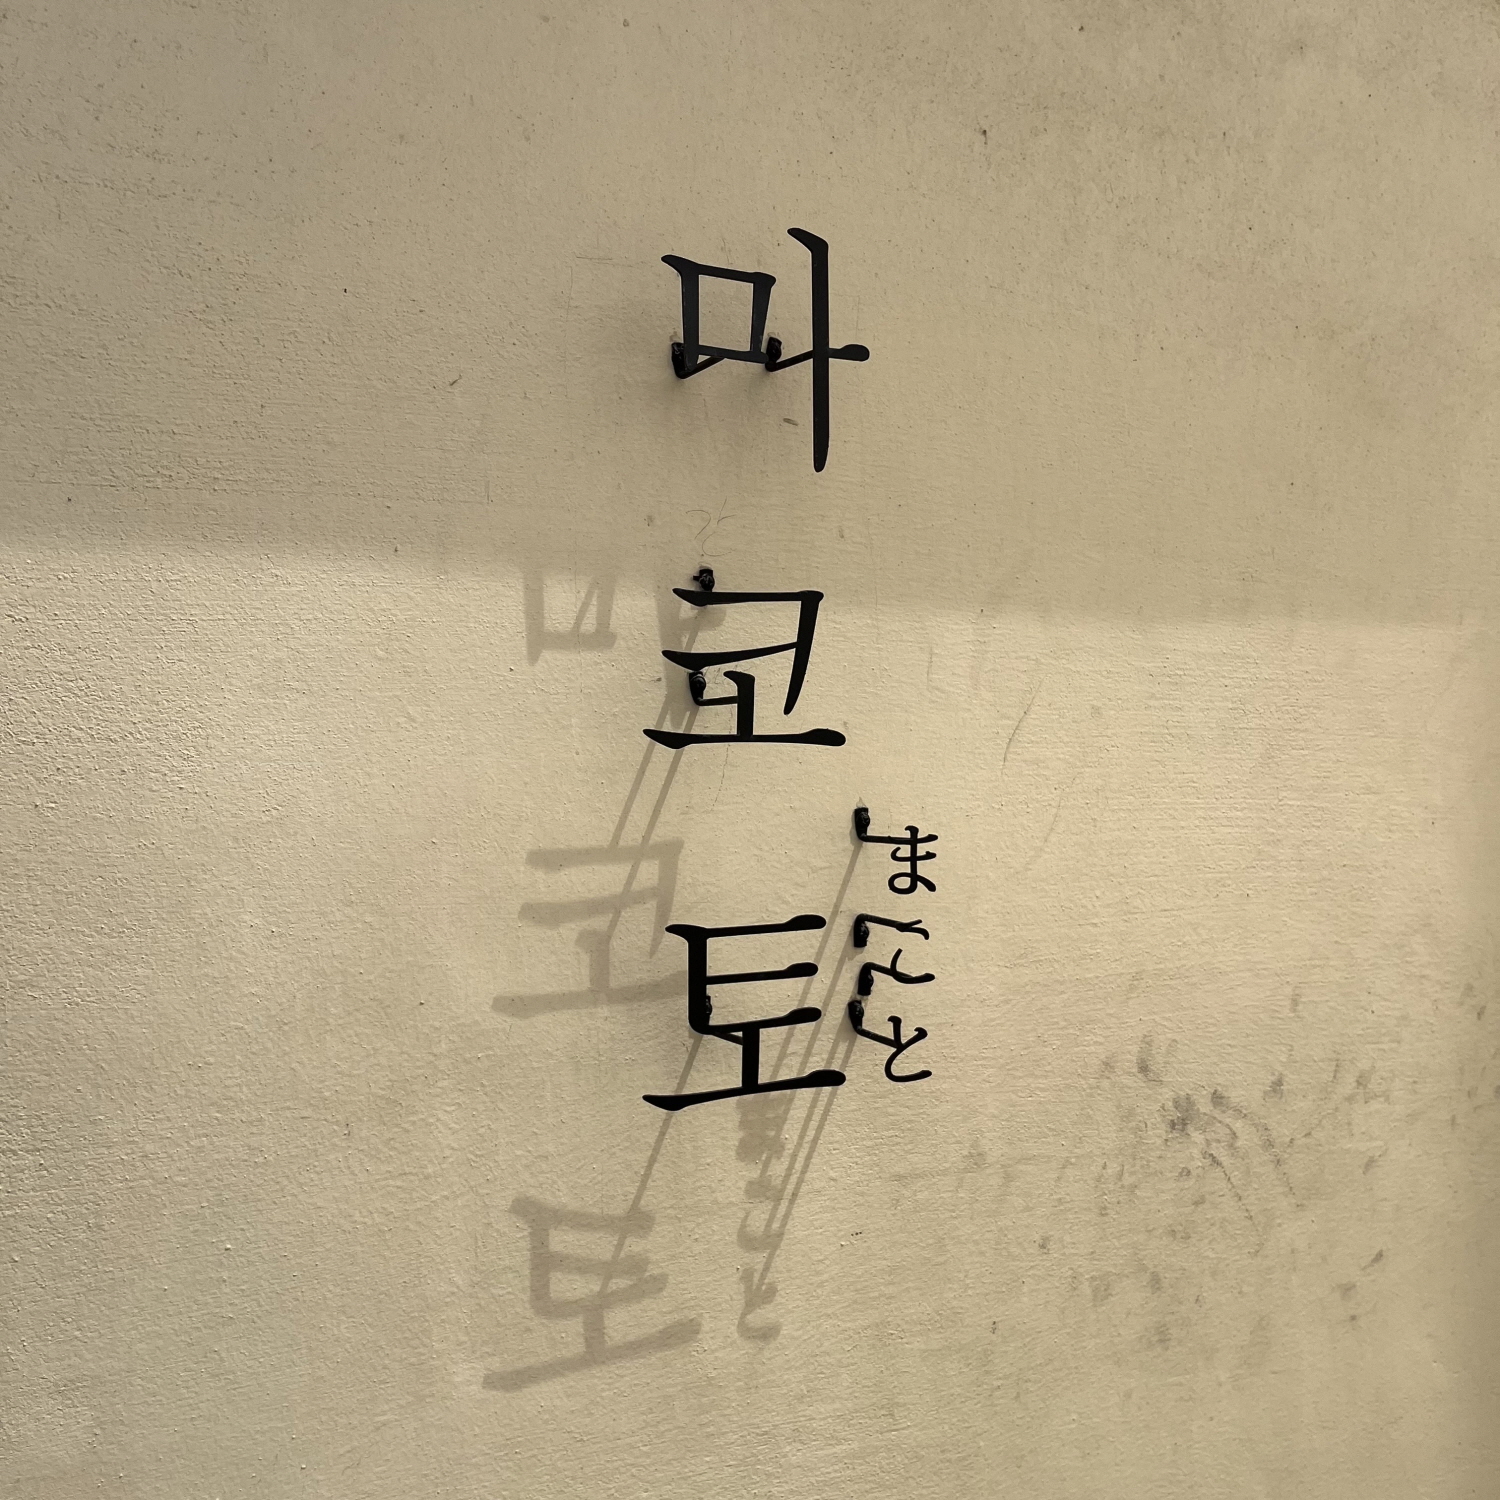 마코토
まこと